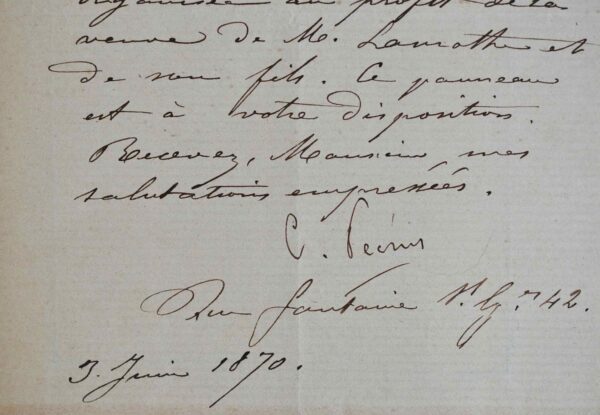 organisée au profit de la
veuve de M. Lamothe et
de son fils. Ce panneau
est à votre disposition.
Recevez, Monsieur, mes
salutations empressées.
C.
Rue Fontaine St. Gges 42.
3. Juin 1870.